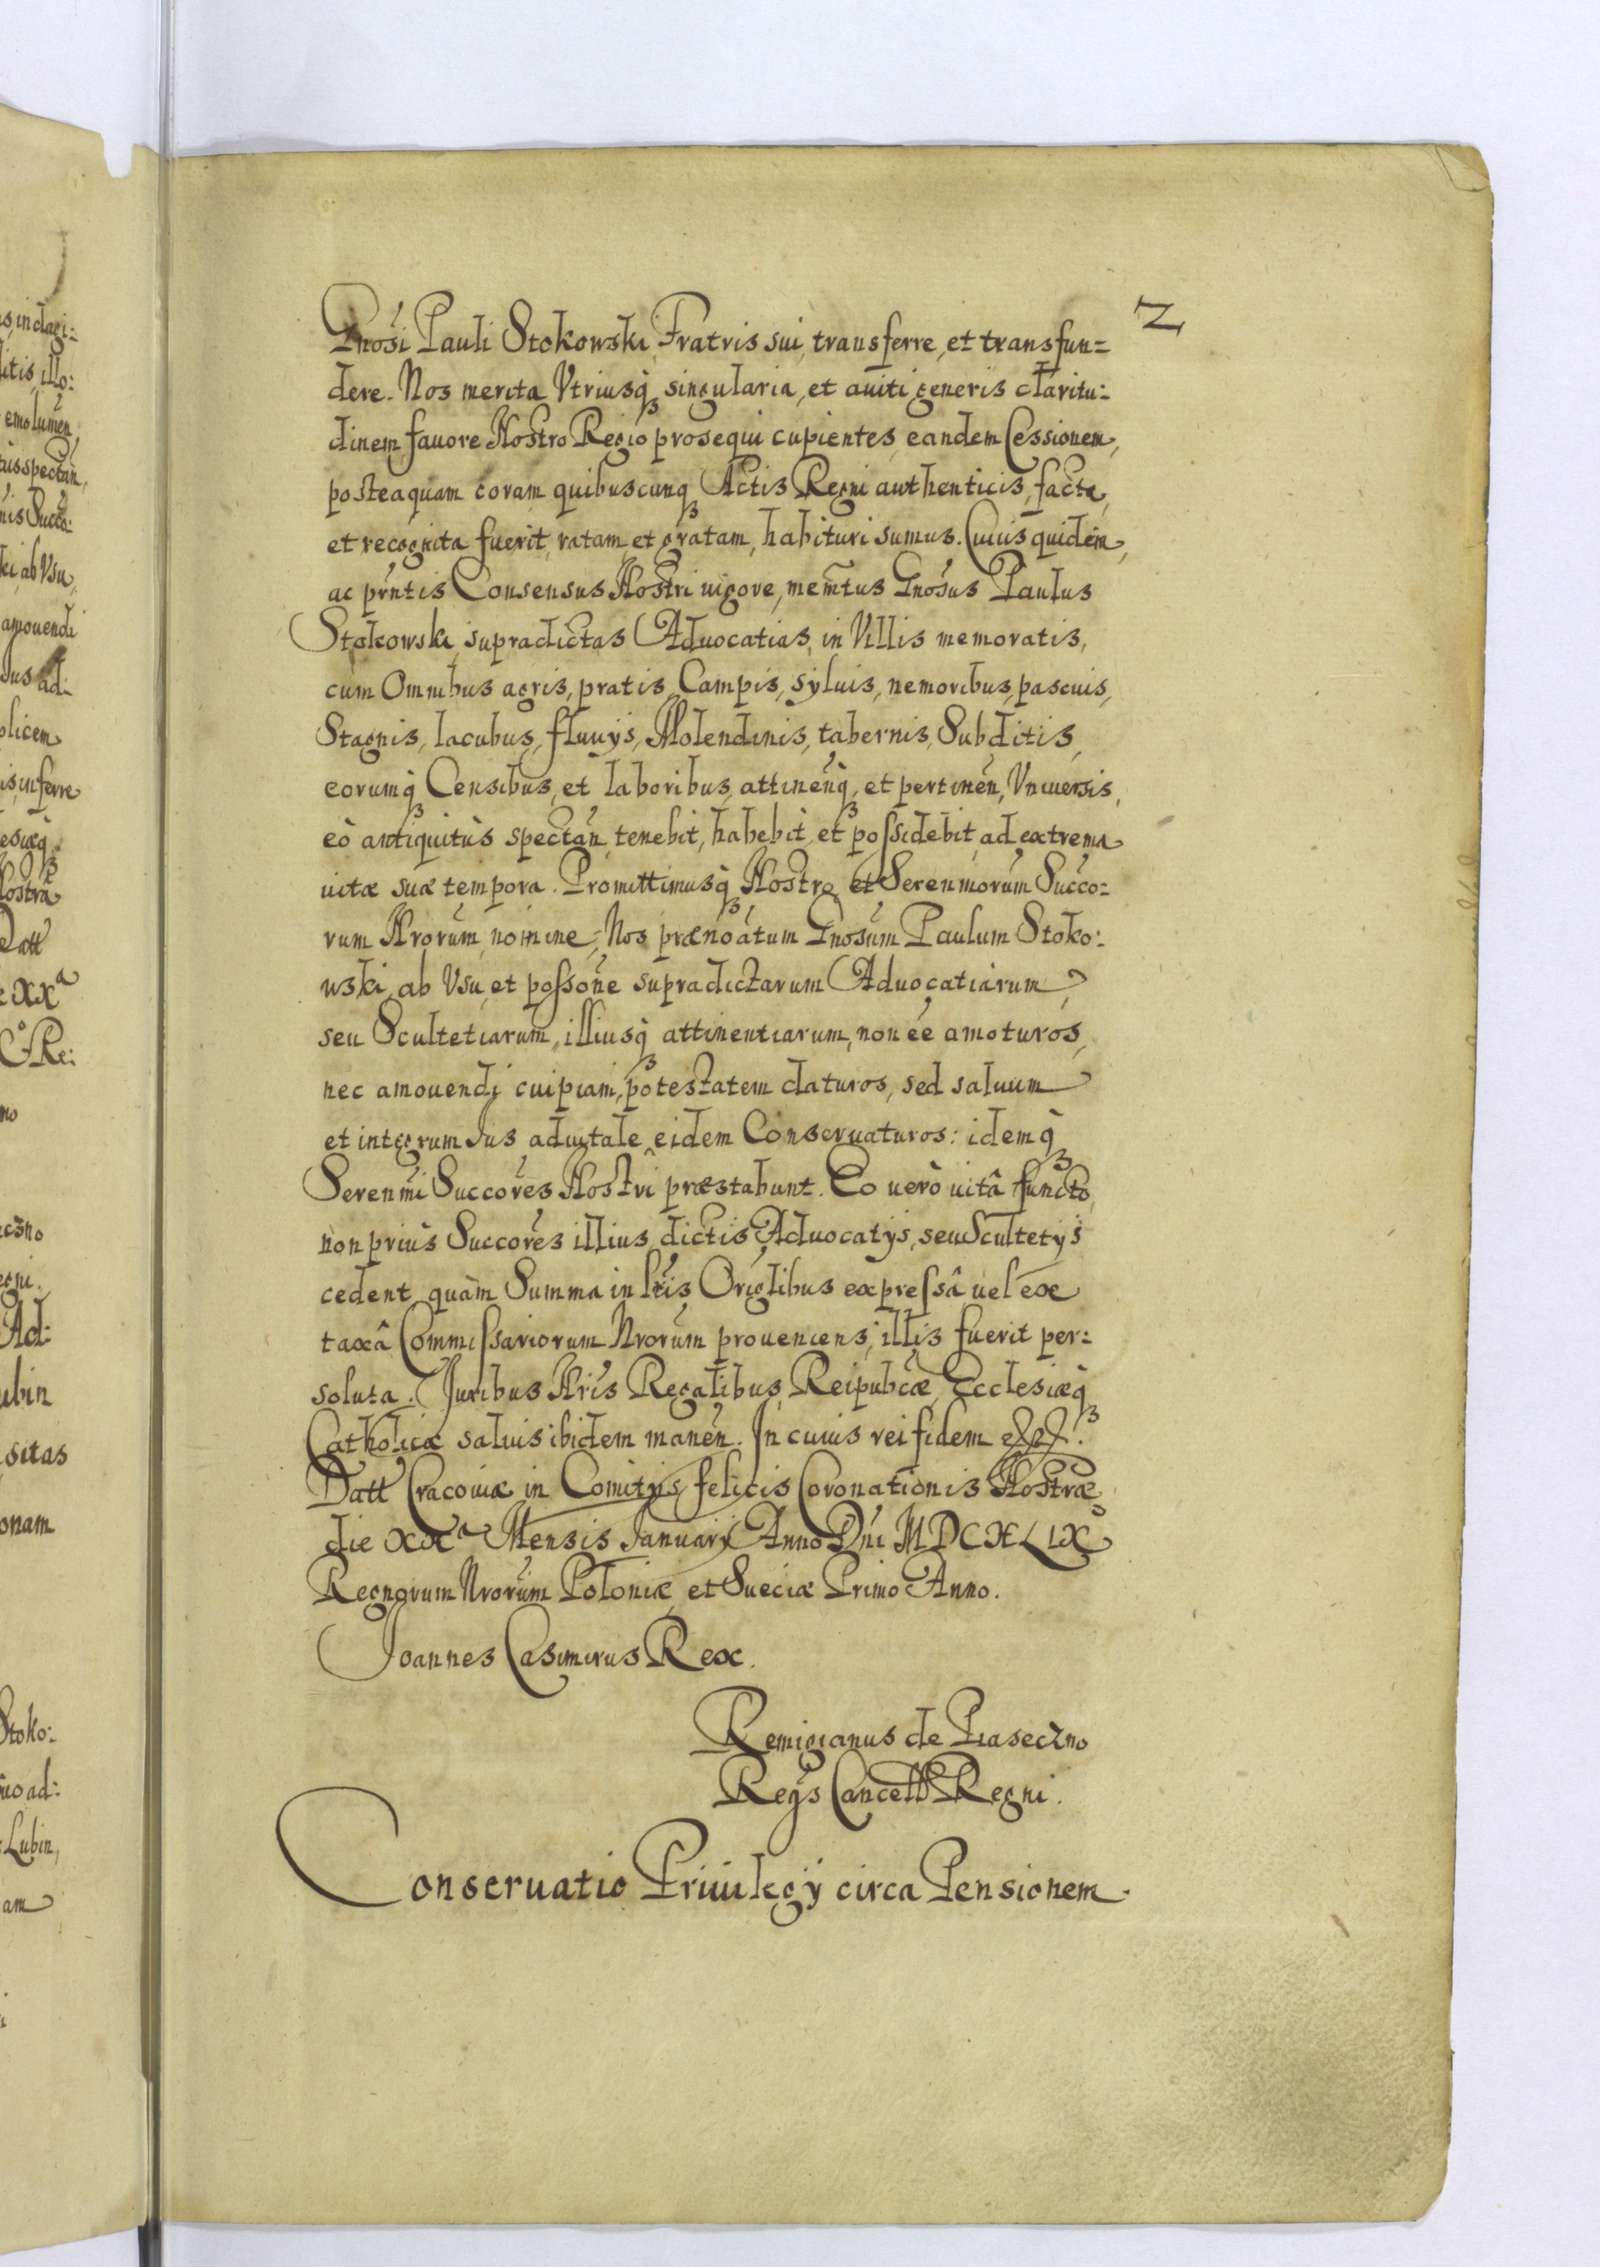 2
Gnosi Pauli Stokowski Fratris sui, transferre, et transfun=
dere. Nos merita Vtriusq3 singularia, et auiti generis claritu=
dinem, fauore Nostro Regio prosequi cupientes, eandem Cessionem,
posteaquam coram quibuscunq3 Actis Regni authenticis, facta,
et recognita fuerit, ratam, et gratam, habituri sumus. Cuius quidem,
ac prntis Consensus Nostri uigore, memtus Gnosus Paulus
Stokowski, supradictas Aduocatias, in Villis memoratis,
cum Omnibus agris, pratis, Campis, syluis, nemoribus, pascuis,
Stagnis, lacubus, fluuijs, Molendinis, tabernis, Subditis,
eorumq3 Censibus, et laboribus, attinenq3, et pertinen, Vniuersis,
eò antiquitùs spectan, tenebit, habebit, et possidebit, ad extrema
uitæ suæ tempora. Promittimusq3 Nostro et Serenmorum Succo=
rum Nrorum, nomine, Nos prænoatum Gnosum Paulum Stoko=
wski, ab Vsu, et possone supradictarum Aduocatiarum,
seu Scultetiarum, illiusq3 attinentiarum, non ee amoturos,
nec amouendi cuipiam, potestatem daturos, sed saluum
et integrum Jus, aduitale, eidem Conseruaturos: idemq3
Serenmi Succores Nostri præstabunt. Eo uerò uitâ functo,
non priùs Succores illius, dictis Aduocatijs, seu Scultetijs
cedent, quàm Summa in ltis Origlibus expressâ uel ex
taxâ Commissariorum Nrorum proueniens, illis fuerit per=
soluta. Juribus Nris Regalibus, Reipublcæ, Ecclesiæq3
Catholicæ saluis ibidem manen. In cuius rei fidem
Datt Cracouiæ in Comitijs felicis Coronationis Nostræ
die XXa Mensis Januarij Anno Dni MDCXLIXo
Regnorum Nrorum Poloniæ, et Sueciæ Primo Anno.
Joannes Casimirus Rex.
Remigianus de Piaseczno
Regs Cancell Regni.
Conseruatio Priuilegij circa Pensionem.